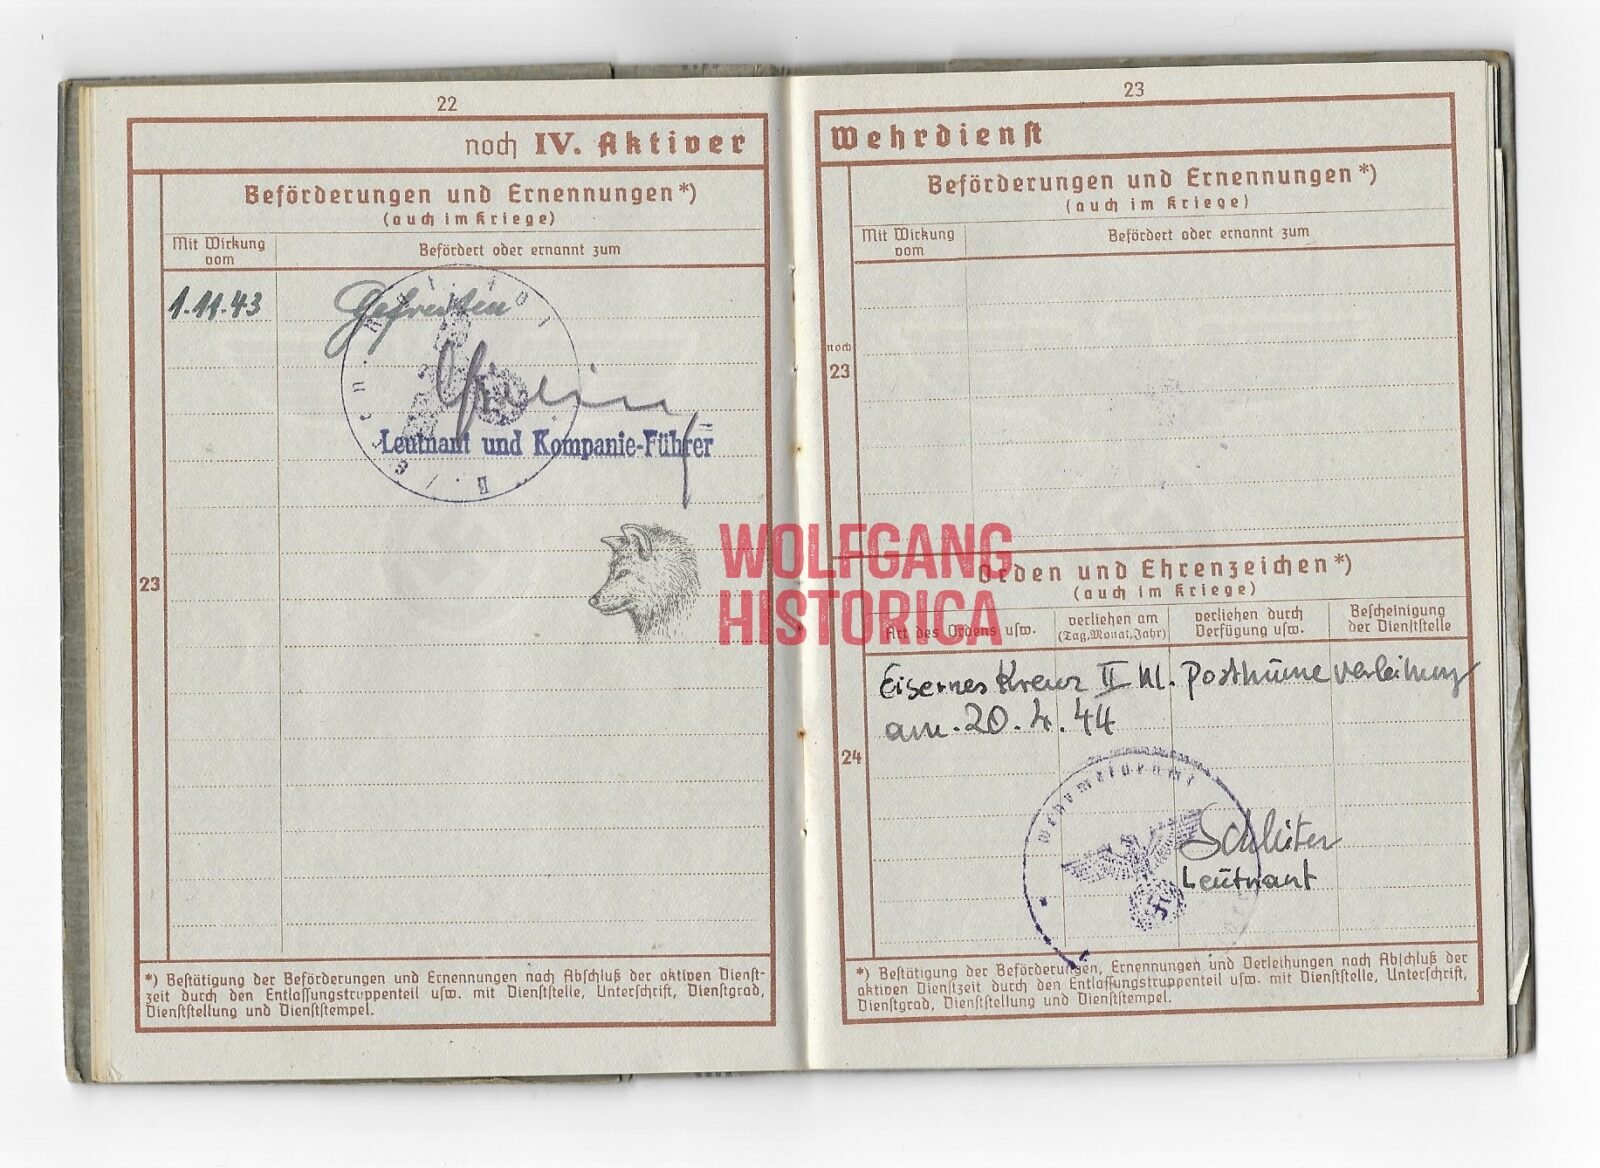 22
noch IV. Aktiver
Beförderungen und Ernennungen*)
(auch im Kriege)
Mit Wirkung
vom
Befördert oder ernannt zum
1.11.43
Gefreiten
Leutnant und Kompanie-Führer
23
*) Bestätigung der Beförderungen und Ernennungen nach Abschluß der aktiven Dienst-
zeit durch den Entlassungstruppenteil usw. mit Dienststelle, Unterschrift, Dienstgrad,
Dienststellung und Dienststempel.
23
Wehrdienst
Beförderungen und Ernennungen*)
(auch im Kriege)
Mit Wirkung
vom
Befördert oder ernannt zum
noch
23
Orden und Ehrenzeichen*)
(auch im Kriege)
Art des Ordens usw.
verliehen am
(Tag, Monat, Jahr)
verliehen durch
Verfügung usw.
Bescheinigung
der Dienststelle
Eisernes Kreuz II Kl. Posthüme verleihung
am. 20. 4. 44
24
Wehrmeldeamt
Schlüter
Leutnant
*) Bestätigung der Beförderungen, Ernennungen und Verleihungen nach Abschluß der
aktiven Dienstzeit durch den Entlassungstruppenteil usw. mit Dienststelle, Unterschrift,
Dienstgrad, Dienststellung und Dienststempel.
WOLFGANG
HISTORICA